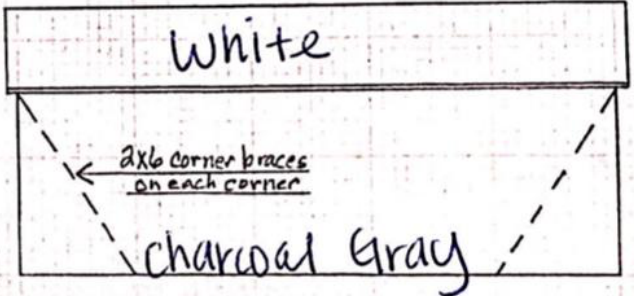 White
2x6 corner braces
on each corner
Charcoal Gray